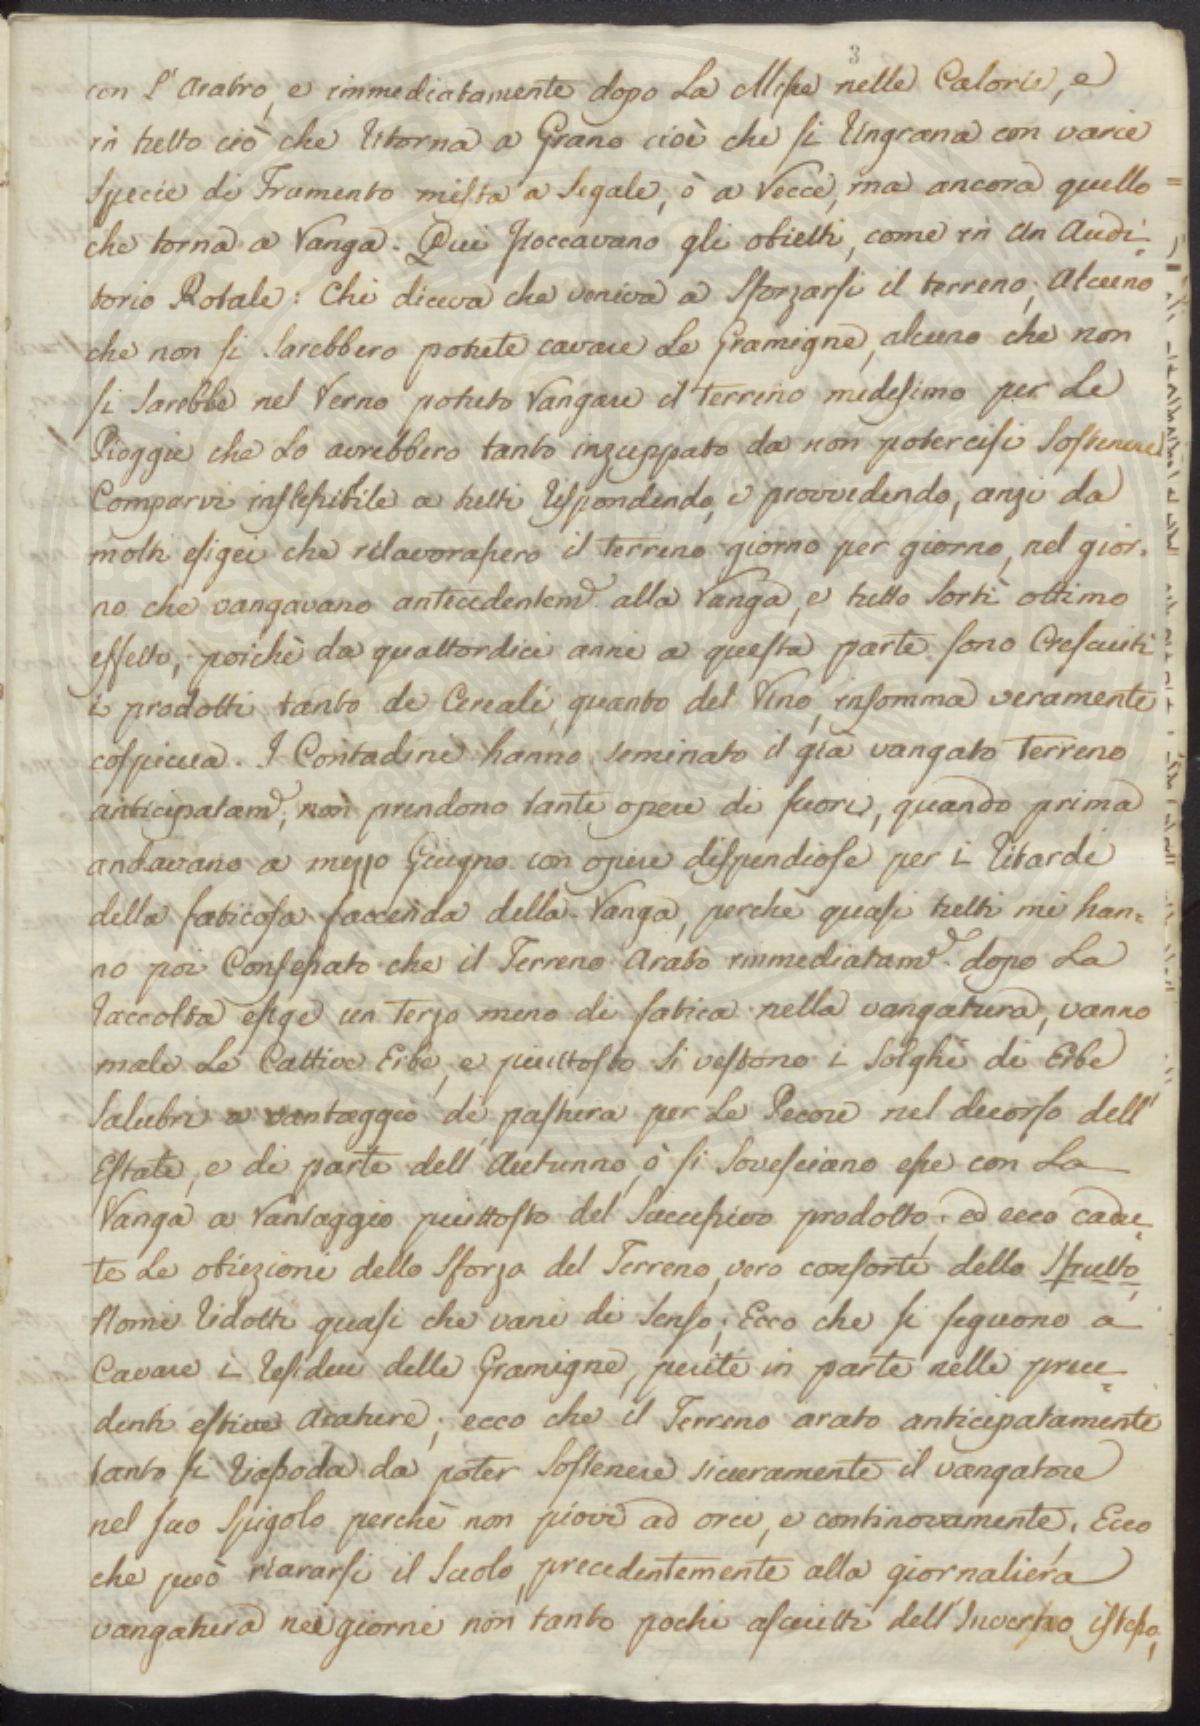 3
con l'Aratro, e immediatamente dopo la Messe nelle Calorie, e
in tutto ciò che ritorna a Grano cioè che si ringrana con varie
specie di Frumento mista a Segale, ò a Vecce, ma ancora quello
che torna a Vanga. Qui fioccavano gli obietti, come in un Audi-
torio Rotale: Chi diceva che veniva a sforzarsi il terreno, Alcuno
che non si sarebbero potute cavare le Gramigne, alcuno che non
si sarebbe nel Verno potuto Vangare il terreno medesimo per le
Pioggie che lo avrebbero tanto inzuppato da non potercisi sostenere
Comparvi inflessibile a tutti rispondendo, e provvedendo, anzi da
molti esigei che rilavorassero il terreno giorno per giorno, nel gior-
no che vangavano antecedentem.e alla Vanga, e tutto sortì ottimo
effetto, poichè da quattordici anni a questa parte sono Cresciuti
i prodotti tanto de Cereali, quanto del Vino, insomma veramente
cospicua. I Contadini hanno seminato il già vangato terreno
anticipatam.e, non prendono tante opere di fuori, quando prima
andavano a mezzo Giugno con opere dispendiose per i ritardi
della faticosa faccenda della Vanga, perchè quasi tutti mi han=
no poi Confessato che il Terreno Arato immediatam.e dopo la
raccolta esige un terzo meno di fatica nella vangatura, vanno
male le Cattive Erbe, e piuttosto si vestono i Solghi di Erbe
Salubri a vantaggio di pastura per le Pecore nel decorso dell'
Estate, e di parte dell'Autunno, ò si Sovesciano esse con la
Vanga a Vantaggio piuttosto del Successivo prodotto; ed ecco cadu-
te le obiezioni dello Sforzo del Terreno, vero consorte dello Sfrutto,
Nomi ridotti quasi che vani di Senso; Ecco che si seguono a
Cavare i residui delle Gramigne, perite in parte nelle prece-
denti estive Arature; ecco che il Terreno arato anticipatamente
tanto si riassoda da poter Sostenere sicuramente il vangatore
nel suo Spigolo perchè non piovi ad orci, e continovamente. Ecco
che può riararsi il Suolo precedentemente alla giornaliera
vangatura nei giorni non tanto pochi asciutti dell'Inverno istesso,